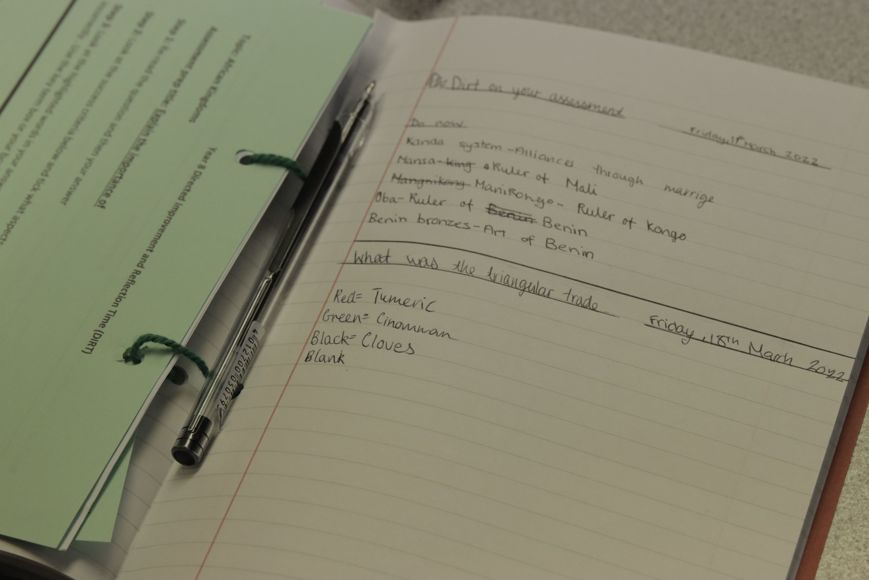 The Dirt on your assessment
Friday, 18th March 2022
Do now
Kanda system - Alliances through marrige
Mansa - king Ruler of Mali
Manikongo - Ruler of Kongo
Oba - Ruler of Benin Benin
Benin bronzes - Art of Benin
What was the triangular trade
Friday, 18th March 2022
Red = Tumeric
Green = Cinomman
Black = Cloves
Blank
Year 8 Directed Improvement and Reflection Time (DIRT)
Topic: African Kingdoms
Assessment prep title: Explain the importance of
Step 1: Re-read the question and then your answer
Step 2: Look at the success criteria below and tick what aspects
Step 3: Look at the highlighted words in your